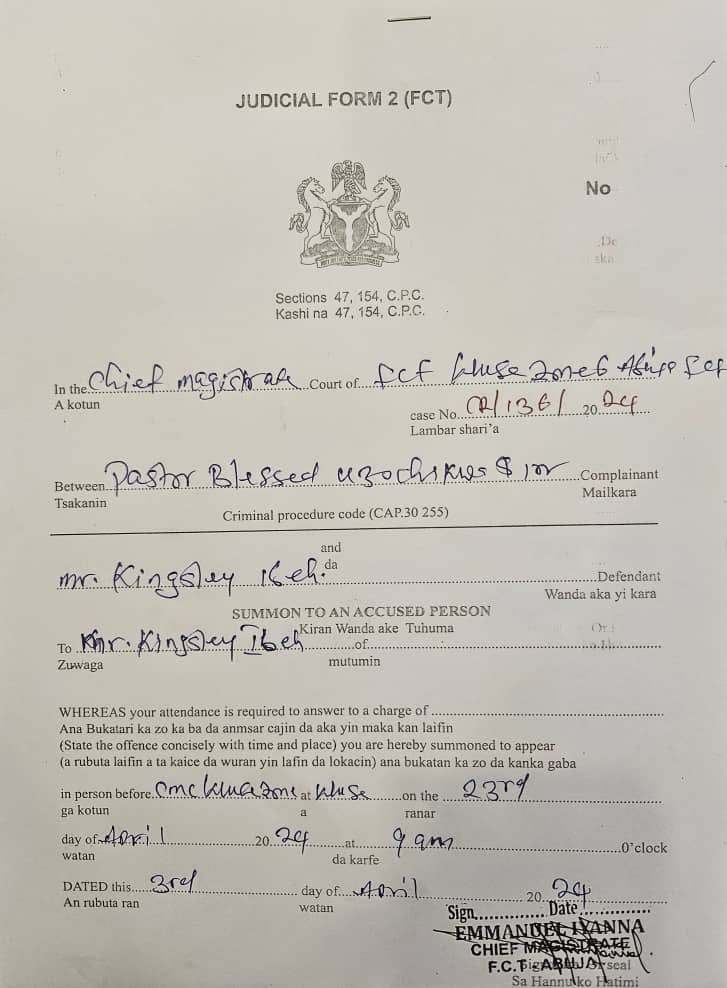 JUDICIAL FORM 2 (FCT)
No
Sections 47, 154, C.P.C.
Kashi na 47, 154, C.P.C.
In the Chief magistrate Court of FCT Wuse Zone 6 Abuja FCT
A kotun
case No. CR/136/ 20 24
Lambar shari'a
Between Pastor Blessed Uzochikwa $ 1or Complainant
Tsakanin Mailkara
Criminal procedure code (CAP.30 255)
and
da
mr. Kingsley Ibeh. Defendant
Wanda aka yi kara
SUMMON TO AN ACCUSED PERSON
Kiran Wanda ake Tuhuma
To Mr. Kingsley Ibeh of
Zuwaga mutumin
WHEREAS your attendance is required to answer to a charge of
Ana Bukatari ka zo ka ba da anmsar cajin da aka yin maka kan laifin
(State the offence concisely with time and place) you are hereby summoned to appear
(a rubuta laifin a ta kaice da wuran yin lafin da lokacin) ana bukatan ka zo da kanka gaba
in person before CMC Wuse Zone at Wuse on the 23rd
ga kotun a ranar
day of April 20 24 at 9 am O'clock
watan da karfe
DATED this 3rd day of April 20 24
An rubuta ran watan
Sign Date
EMMANUEL IYANNA
CHIEF MAGISTRATE
F.C.T ABUJA seal
Sa Hannu ko Hatimi